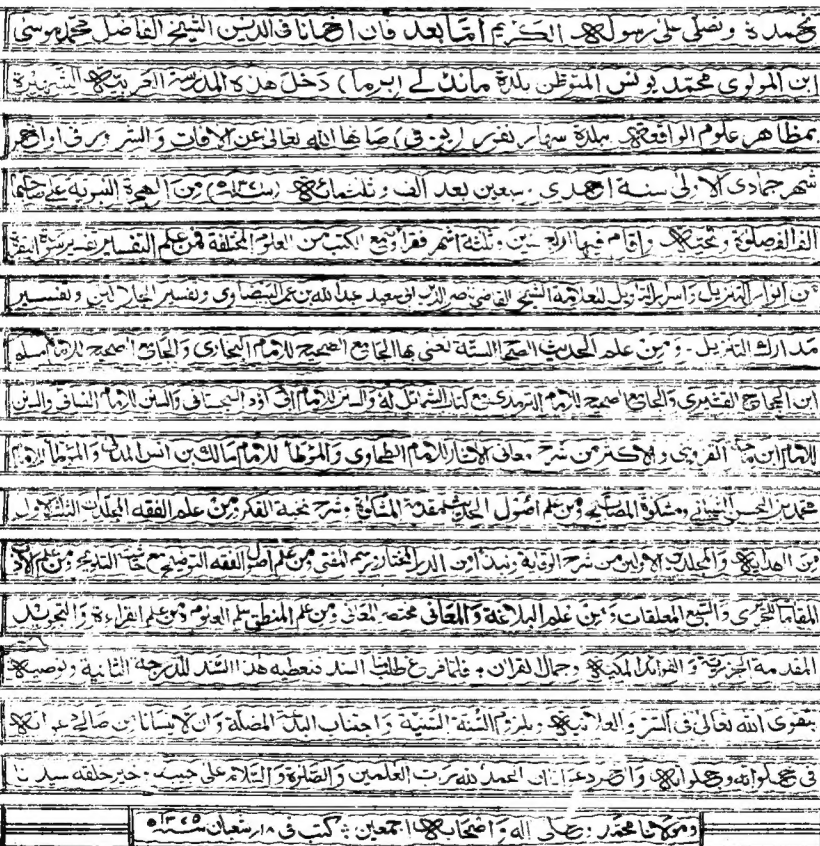 نحمده ونصلى على رسوله الكريم امّا بعد فان اخانا فى الدين الشيخ الفاضل محمد موسى
ابن المولوى محمّد يونس المتوطن بلدة ماندلے (برما) دخل هذه المدرسة العربية الشهيرة
بمظاهر علوم الواقعة ببلدة سهارنفور (يو-پی) صانها الله تعالى عن الآفات و الشرور فى اواخر
شهر جمادى الاولى سنة احدى وسبعين بعد الف و ثلثمائة من الهجرة النبوية على صاحبها
الف الف صلوة وتحية و اقام فيها وثلثة اشهر فقرأ الكتب من العلوم المختلفة فمن علم التفسير تفسير سورة البقرة
من انوار التنزيل و اسرار التاويل للعلامة الشيخ القاضى ناصر الدين ابى سعيد عبدالله بن عمر البيضاوى وتفسير الجلالين وتفسير
مدارك التنزيل - ومن علم الحديث الصحاح الستة نعنى بها الجامع الصحيح للامام البخارى والجامع الصحيح للامام مسلم
ابن الحجاج القشيرى والجامع الصحيح للامام الترمذى مع كتاب الشمائل له والسنن للامام ابى داؤد السجستانى والسنن للامام النسائى والسنن
للامام ابن ماجة القزوينى و الاكثر من شرح معانى الآثار للامام الطحاوى والمؤطأ للامام مالك بن انس المدنى والمؤطأ للامام
محمد بن الحسن الشيبانى ومشكوة المصابيح ومن علم اصول الحديث مقدمة المشكوة وشرح نخبة الفكر ومن علم الفقه المجلدات الثلث الاول
من الهداية والمجلدين الاولين من شرح الوقاية ونبذا من الدر المختار ورسم المفتى ومن علم اصول الفقه التوضيح مع التلويح ومن علم الادب
المقامات للحريرى والسبع المعلقات ومن علم البلاغة والمعانى مختصر المعانى ومن علم المنطق سلم العلوم ومن علم القراءة والتجويد
المقدمة الجزرية و الفوائد المكية وجمال القران ۔ فلما فرغ طلب منا السند فنعطيه هذا السند للدرجة الثانية ونوصيه
بتقوى الله تعالى فى السر و العلانية وبلزوم السنة السنية و اجتناب البدعة المضلة وان لا ينسانا من صالح دعواته
فى خلواته وجلواته و اخر دعوانا ان الحمد لله رب العلمين والصلوة والسلام على حبيبه خير خلقه سيدنا
ومولانا محمّد وعلى اله و اصحابه اجمعين ۔ كتب فى ١٨ شعبان سنة